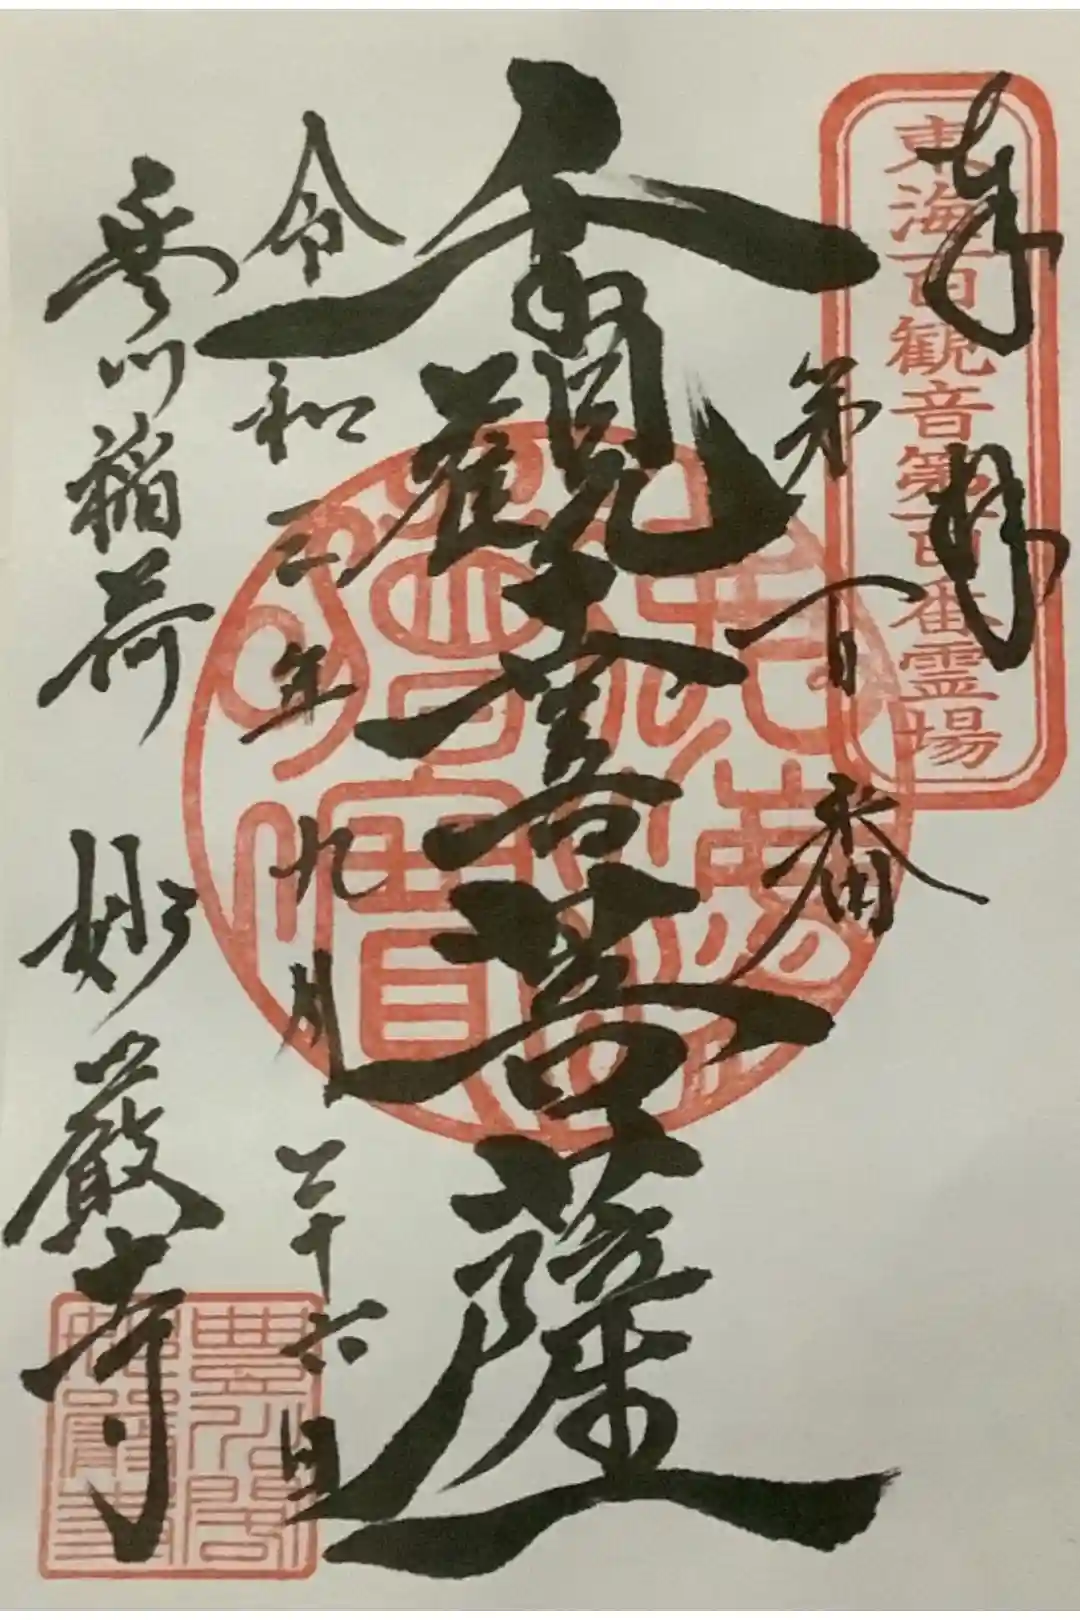 奉拝
東海百観音第百番霊場
第百番
千手觀音菩薩
令和三年九月二十六日
豊川稲荷 妙厳寺
豊川閣
妙嚴寺